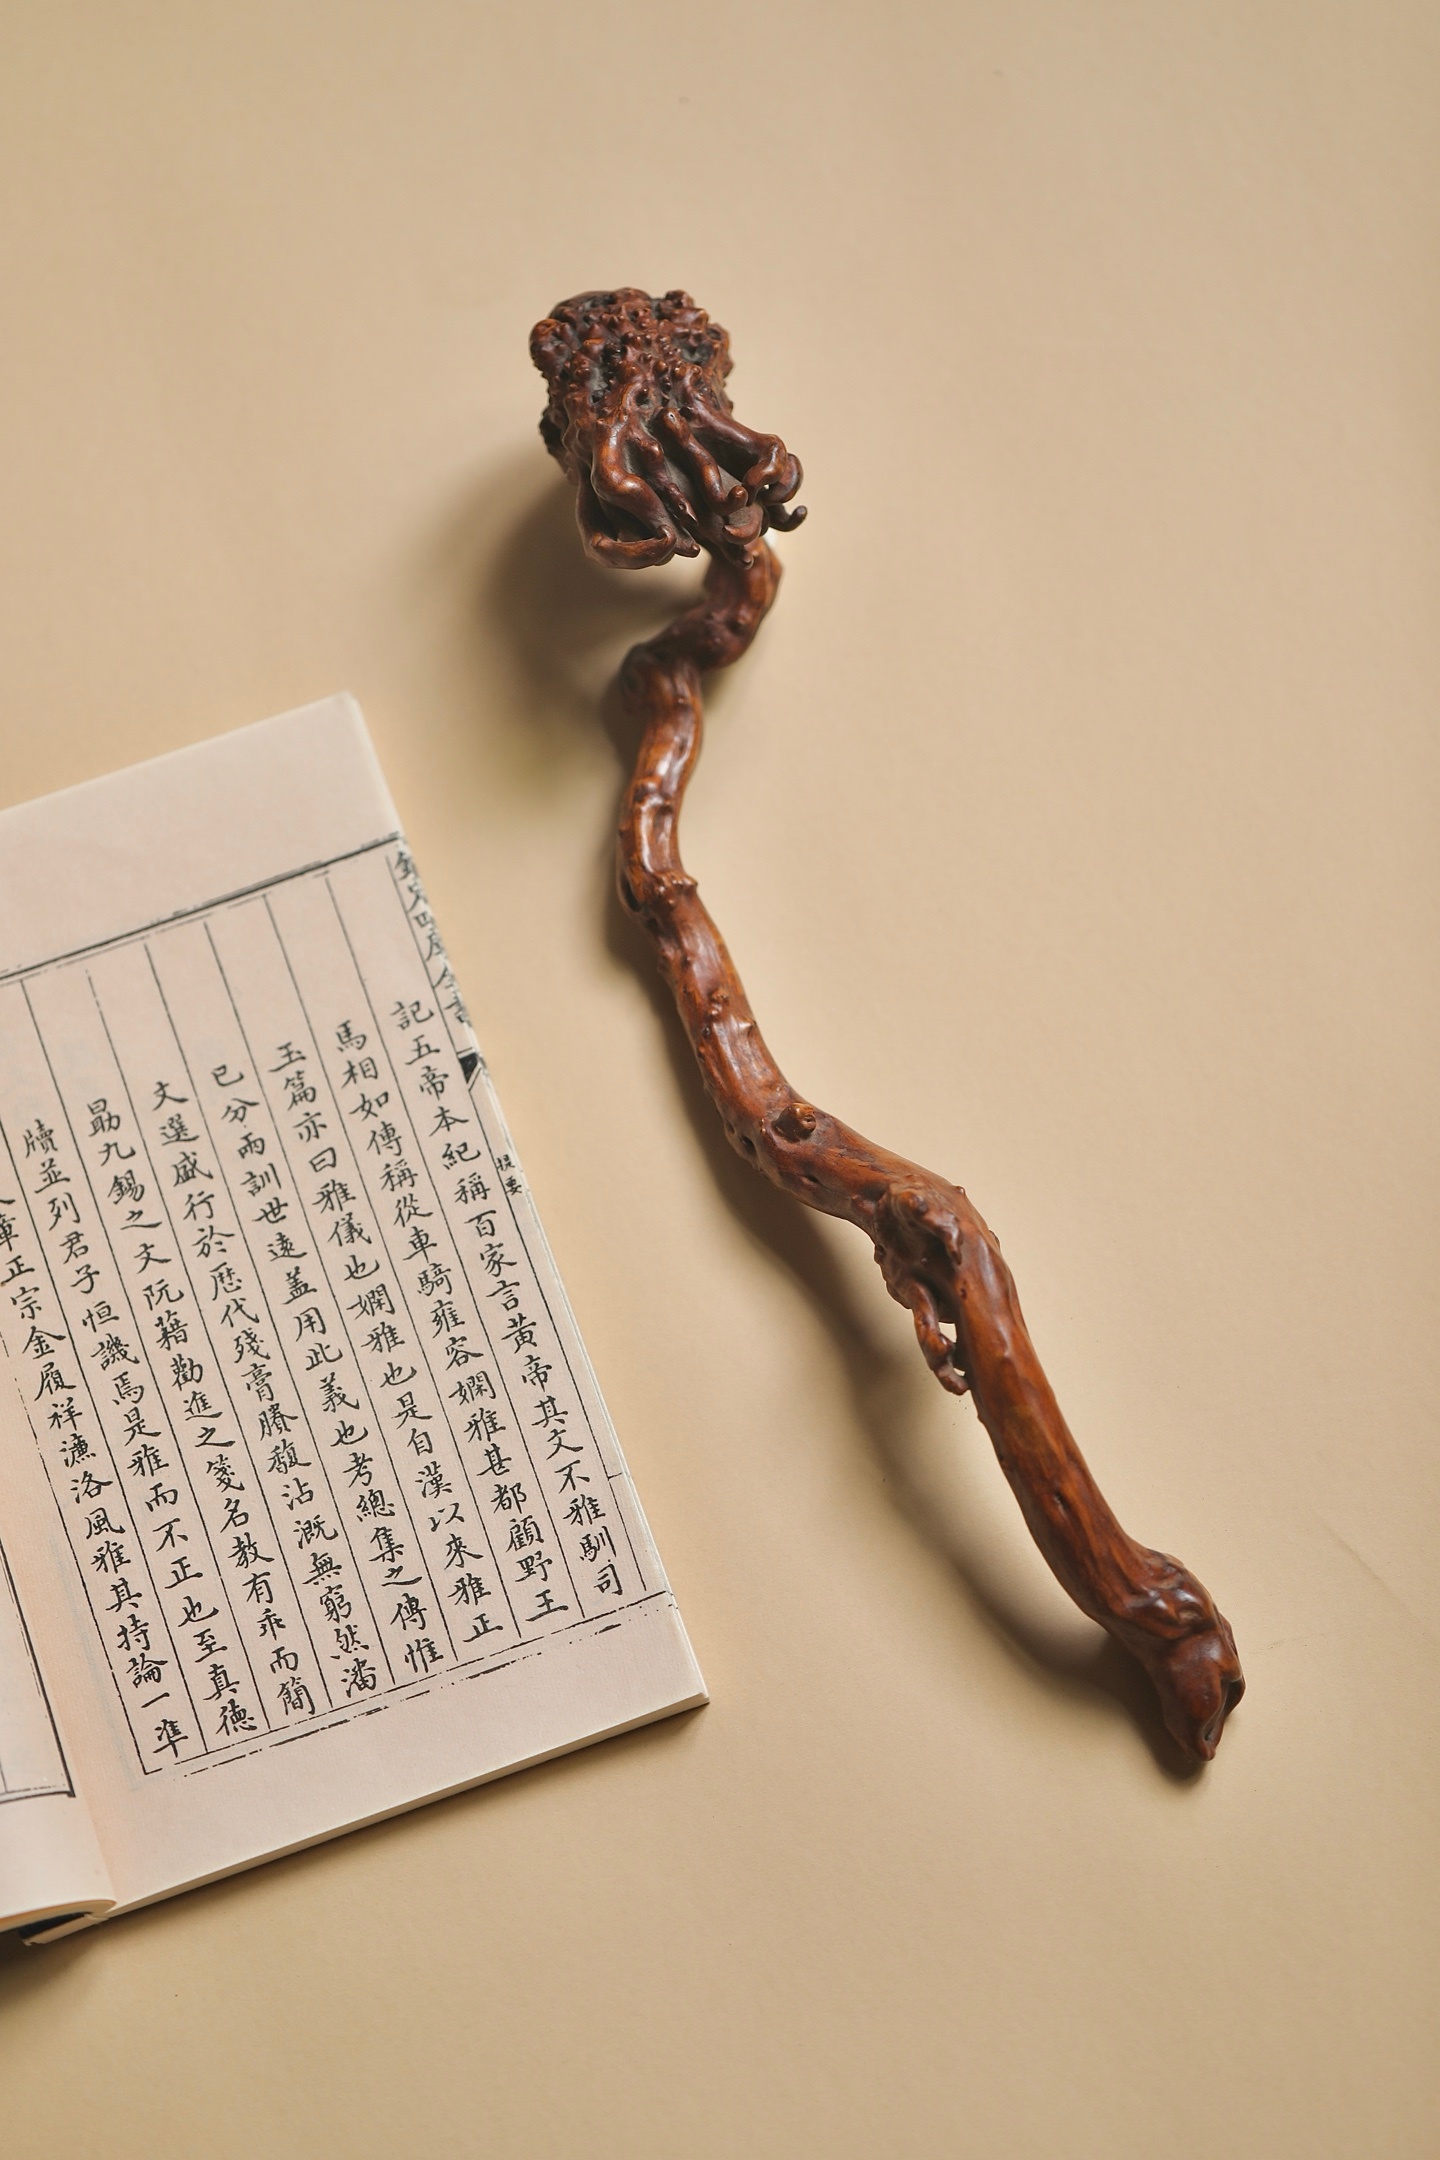 欽定四庫全書
提要
記五帝本紀稱百家言黄帝其文不雅馴司
馬相如傳稱從車騎雍容嫻雅甚都顧野王
玉篇亦曰雅儀也嫻雅也是自漢以來雅正
已分兩訓世遠盖用此義也考總集之傳惟
文選盛行於歴代殘膏賸馥沾溉無窮然潘
勗九錫之文阮籍勸進之箋名教有乖而簡
牘並列君子恒譏焉是雅而不正也至真德
章正宗金履祥濂洛風雅其持論一凖